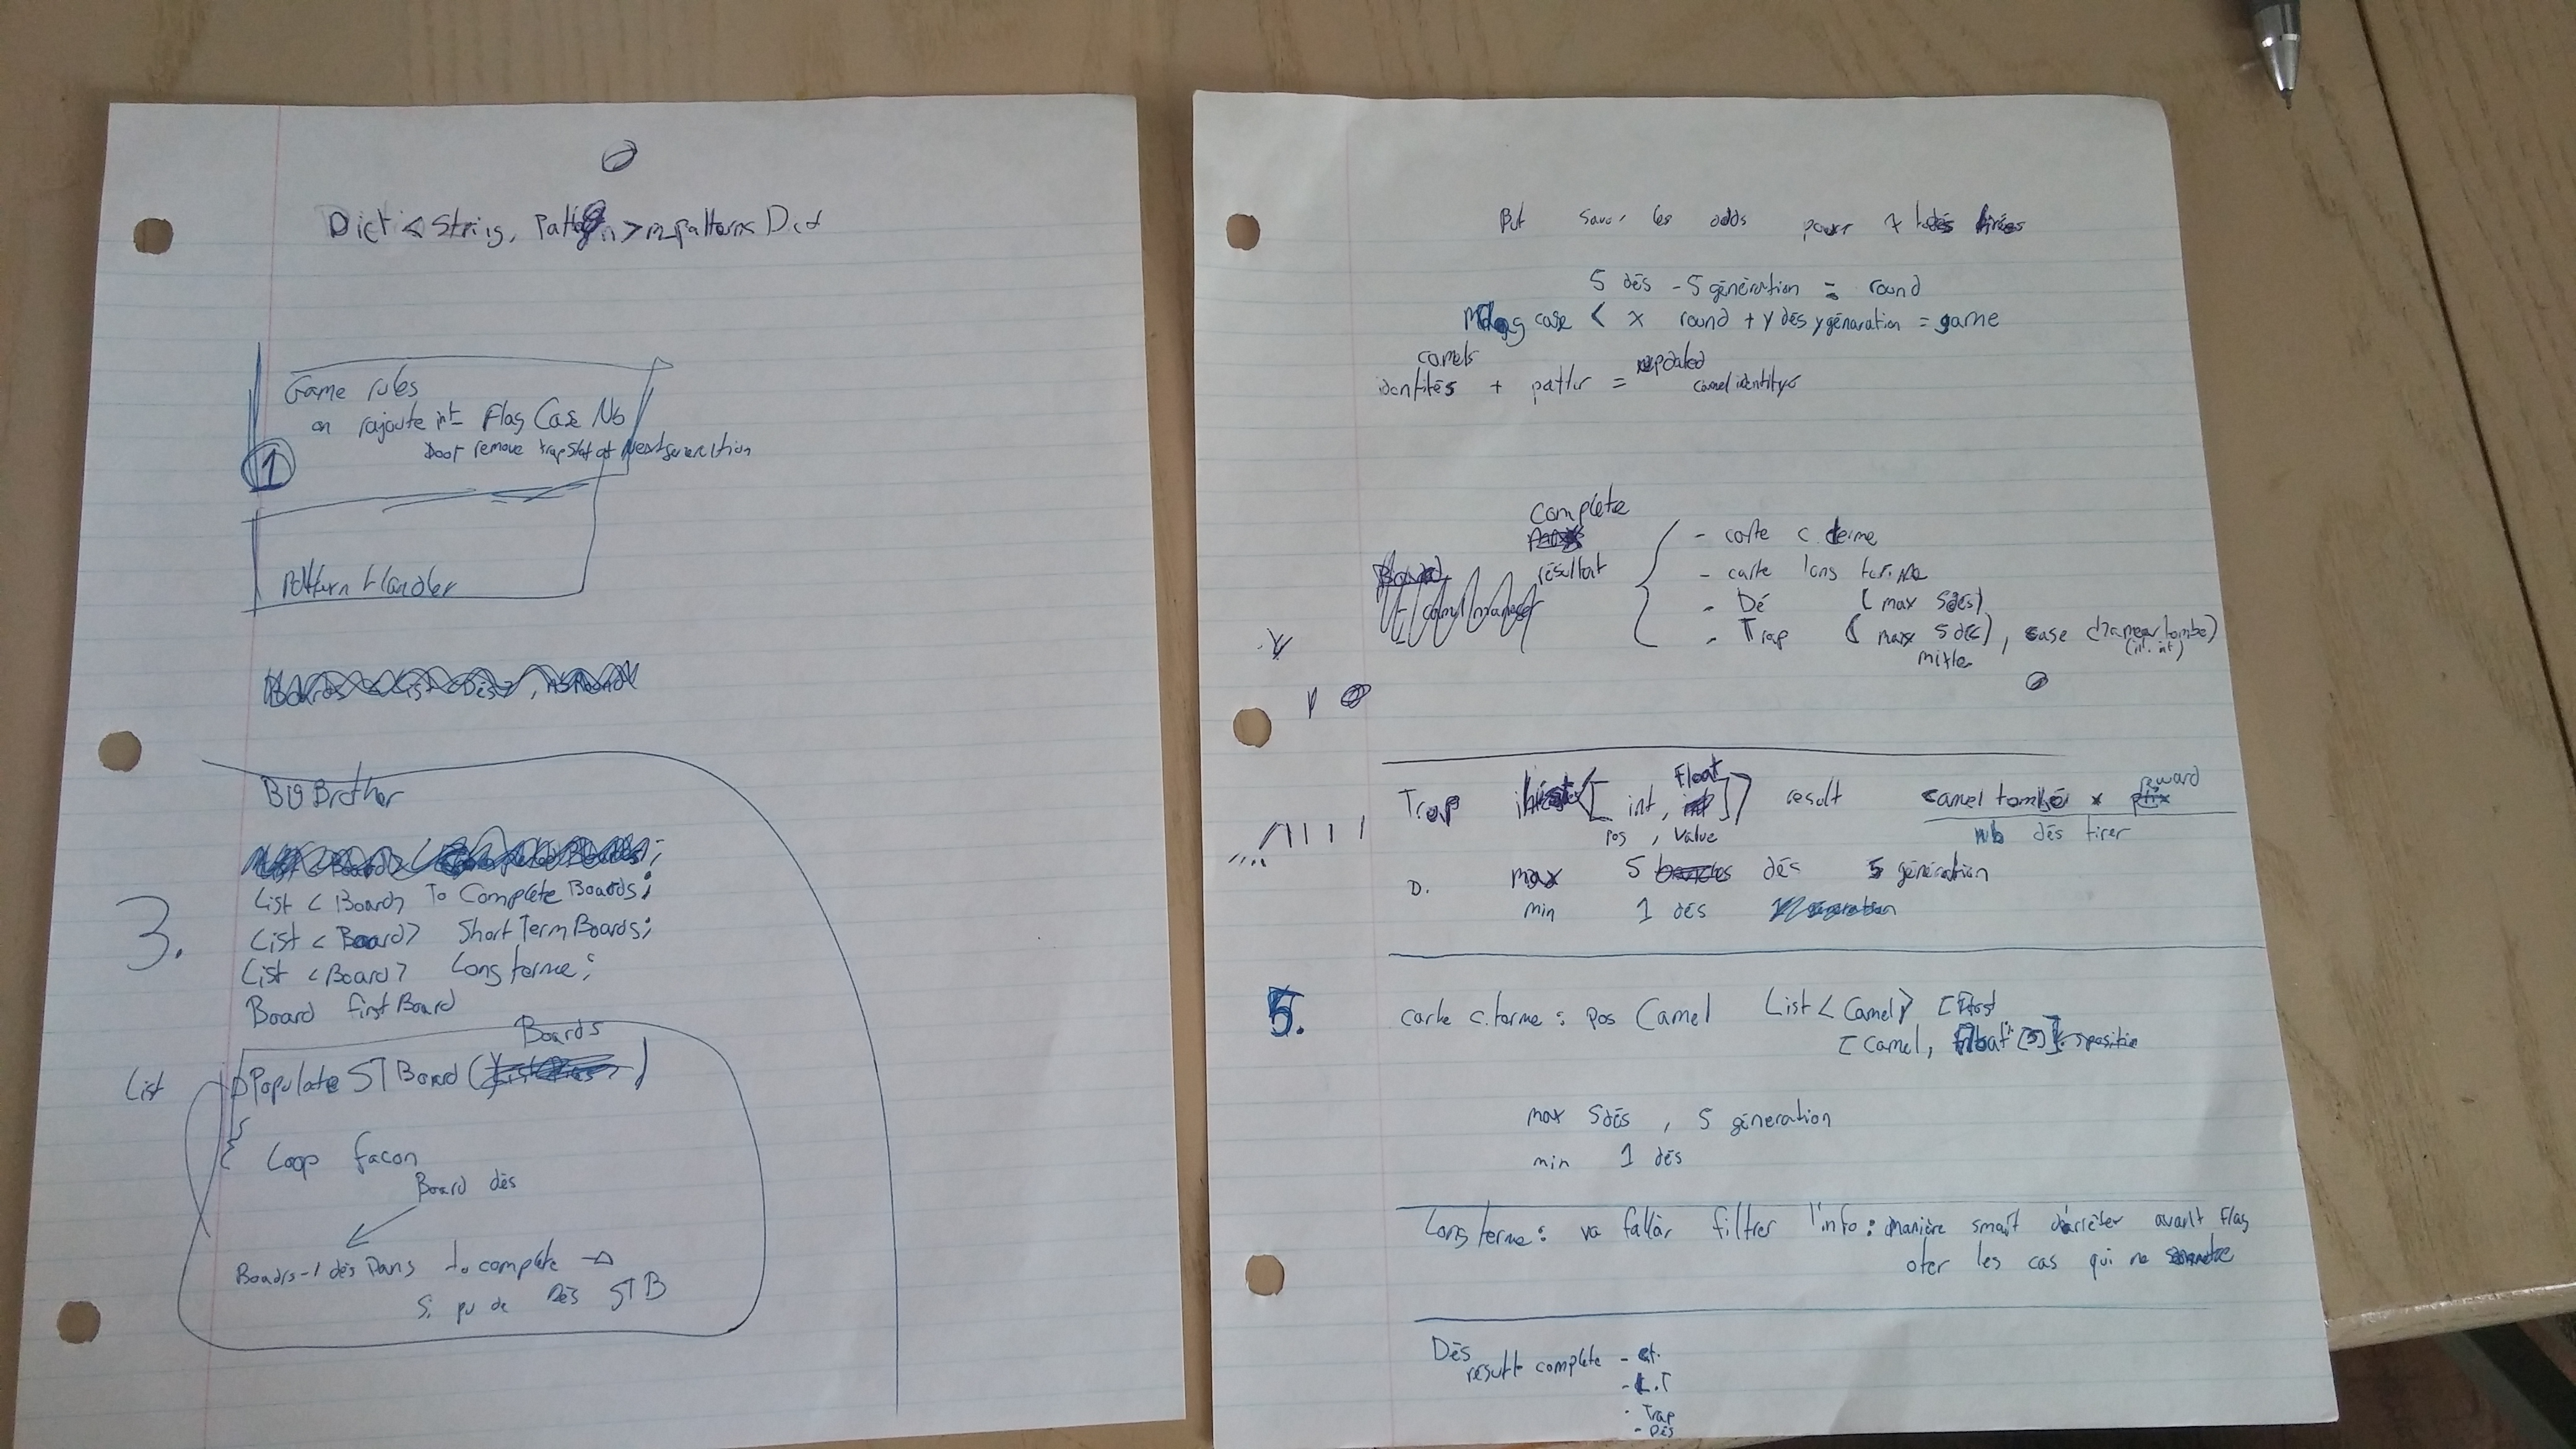 Dict < String, Pattern > m_patterns Dict
Game rules
on rajoute int Flag Case Nb
Dont remove trap Stat at Next generation
1
Pattern Handler
Big Brother
3.
List < Board> To Complete Boards;
List < Board> Short Term Boards;
List < Board> Long terme;
Board first Board
Boards
List Populate ST Board ( )
Loop facon
Board dés
Boards-1 dés Dans to complete →
Si pu de Dés STB
But savoir les odds pour
5 dés - 5 génération = round
case < x round + y dés y génération = game
camels updated
identités + patter = camel identitys
Complete
Board résultat
- carte c. terme
- carte long terme
- Dé ( max 5 dés)
- Trap ( max 5 dés), case
Float
reward
Trap [ int, ] result camel tombé x
pos, value nb dés tirer
D. max 5 dés 5 génération
min 1 dés
5. carte c. terme : pos Camel List < Camel>
[ Camel, float [5]] position
max 5 dés , 5 géneration
min 1 dés
Long terme : va falloir filtrer l'info : manière smart d'arrêter avant Flag
oter les cas qui ne
Dés
result complete - ct.
- L.T
- Trap
- Dés